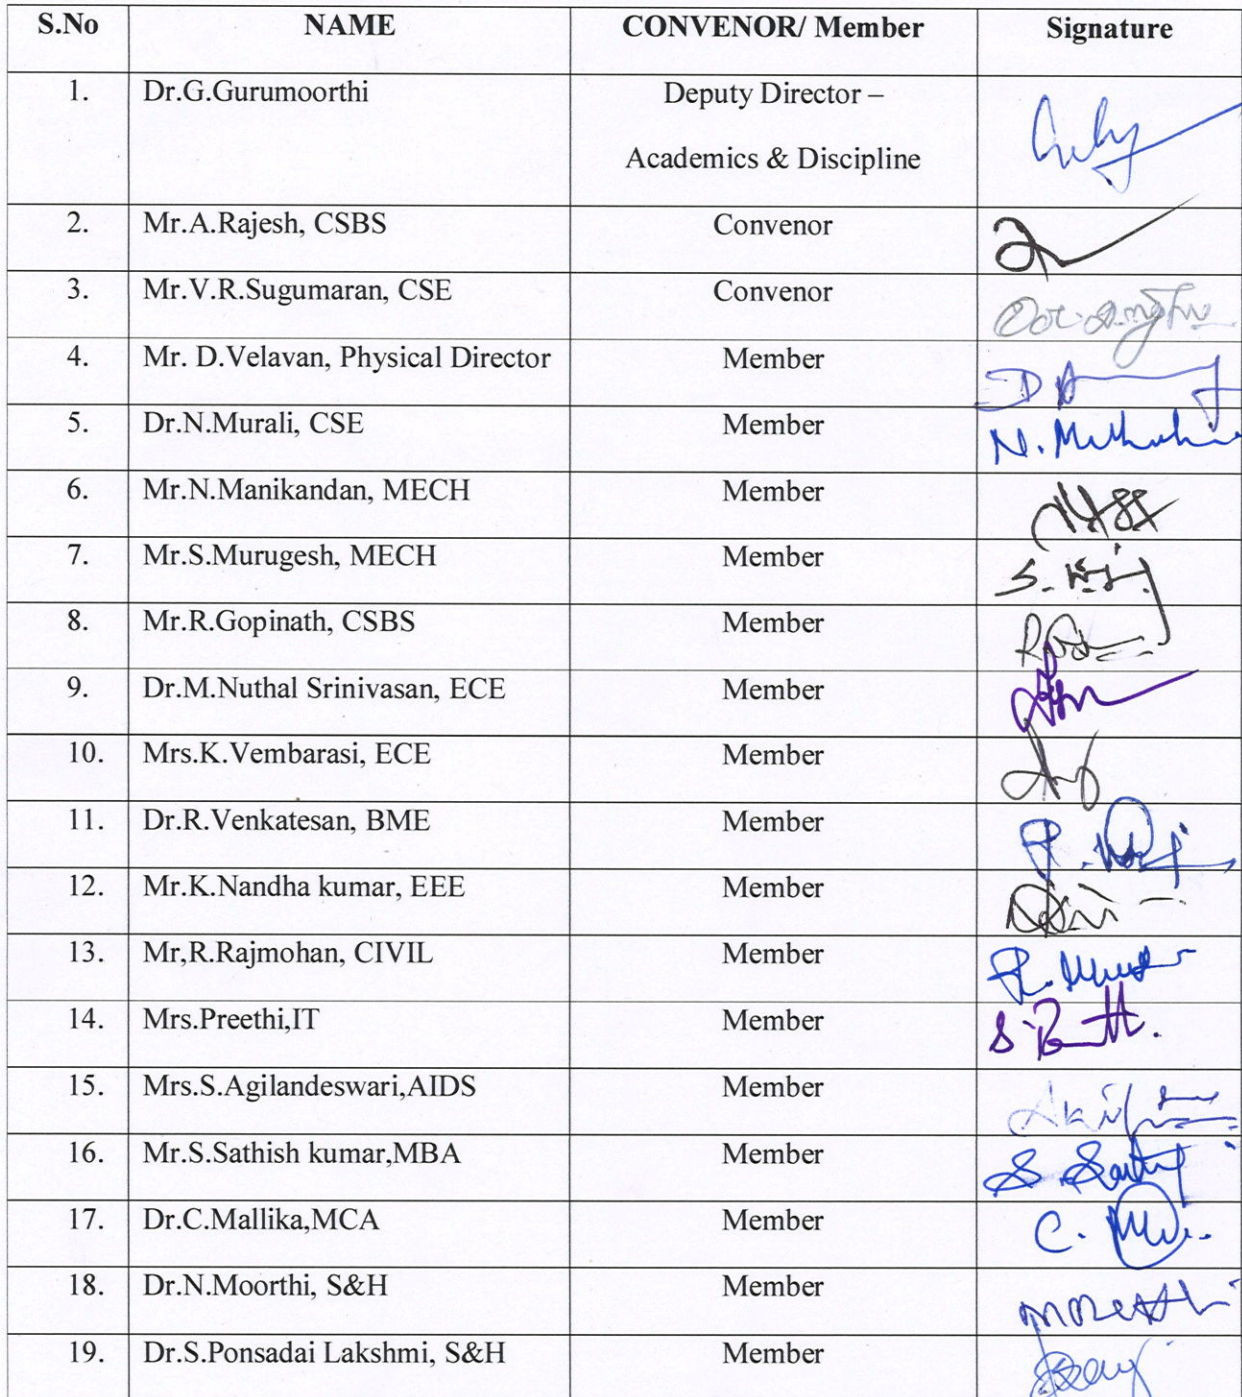 S.No NAME CONVENOR/ Member Signature
1. Dr.G.Gurumoorthi Deputy Director –
Academics & Discipline
2. Mr.A.Rajesh, CSBS Convenor
3. Mr.V.R.Sugumaran, CSE Convenor
4. Mr. D.Velavan, Physical Director Member
5. Dr.N.Murali, CSE Member
6. Mr.N.Manikandan, MECH Member
7. Mr.S.Murugesh, MECH Member
8. Mr.R.Gopinath, CSBS Member
9. Dr.M.Nuthal Srinivasan, ECE Member
10. Mrs.K.Vembarasi, ECE Member
11. Dr.R.Venkatesan, BME Member
12. Mr.K.Nandha kumar, EEE Member
13. Mr,R.Rajmohan, CIVIL Member
14. Mrs.Preethi,IT Member
15. Mrs.S.Agilandeswari,AIDS Member
16. Mr.S.Sathish kumar,MBA Member
17. Dr.C.Mallika,MCA Member
18. Dr.N.Moorthi, S&H Member
19. Dr.S.Ponsadai Lakshmi, S&H Member